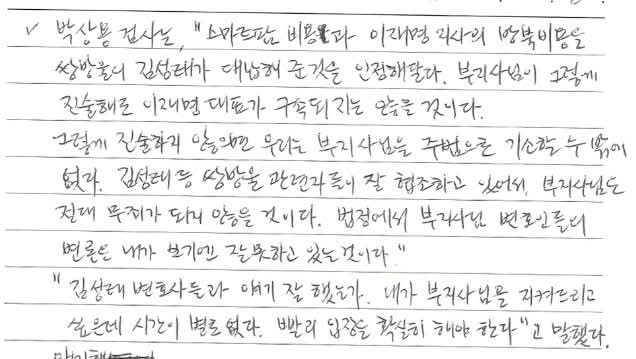 ✓ 박상용 검사는, "스마트팜 비용과 이재명 지사의 방북비용을
쌍방울의 김성태가 대납해 준것을 인정해달라. 부지사님이 그렇게
진술해도 이재명 대표가 구속되지는 않을 것이다.
그렇게 진술하지 않을려면 우리는 부지사님을 주범으로 기소할 수 밖에
없다. 김성태 등 쌍방울 관련자들이 잘 협조하고 있어서, 부지사님도
절대 무죄가 되지 않을 것이다. 법정에서 부지사님 변호인들의
변론은 내가 보기엔 잘못하고 있는것이다."
"김성태 변호사들과 얘기 잘 했는가. 내가 부지사님을 지켜드리고
싶은데 시간이 별로 없다. 빨리 입장을 확실히 해야 한다"고 말했다.